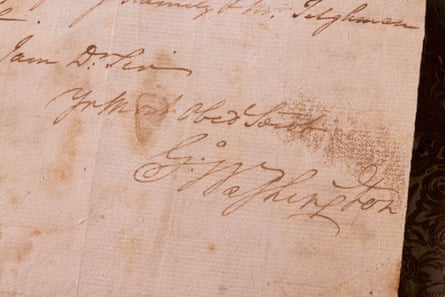 family & Mr. Tilghman
I am Dr Sir
Yr Most Obedt Servt
Go: Washington